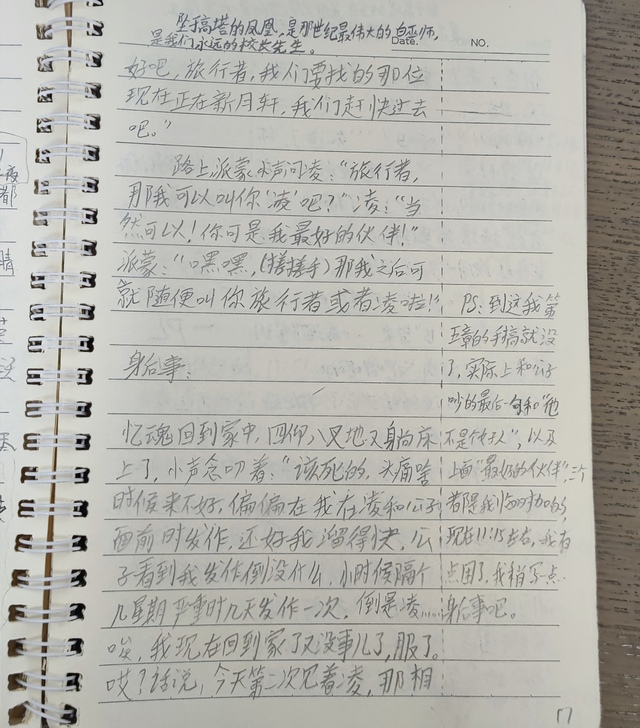 坠高塔的凤凰，是那世纪最伟大的白巫师，
是我们永远的校长先生。
Date.
NO.
好吧，旅行者，我们要找的那位
现在正在新月轩，我们赶快过去
吧。”
路上，派蒙小声问凌：“旅行者，
那我可以叫你‘凌’吧？”凌：“当
然可以！你可是我最好的伙伴！”
派蒙：“嘿嘿，(搓搓手)那我之后可
就随便叫你旅行者或者凌啦！”
身后事：
忆魂回到家中，四仰八叉地又躺床
上了，小声念叨着：“该死的，头痛啥
时候来不好，偏偏在我在凌和公子
面前时发作，还好我溜得快，公
子看到我发作倒没什么，小时候隔个
几星期严重时几天发作一次，倒是凌……
唉，我现在回到家了又没事儿了，服了。
哎？话说，今天第二次见着凌，那相
PS：到这我第
五章的手稿就没
了，实际上和公子
吵的最后一句和“他
不是什么好人”，以及
上面“最好的伙伴”三个
都是我临时加的，
现在11:15左右，我有
点困了，我稍写点
身后事吧。
17